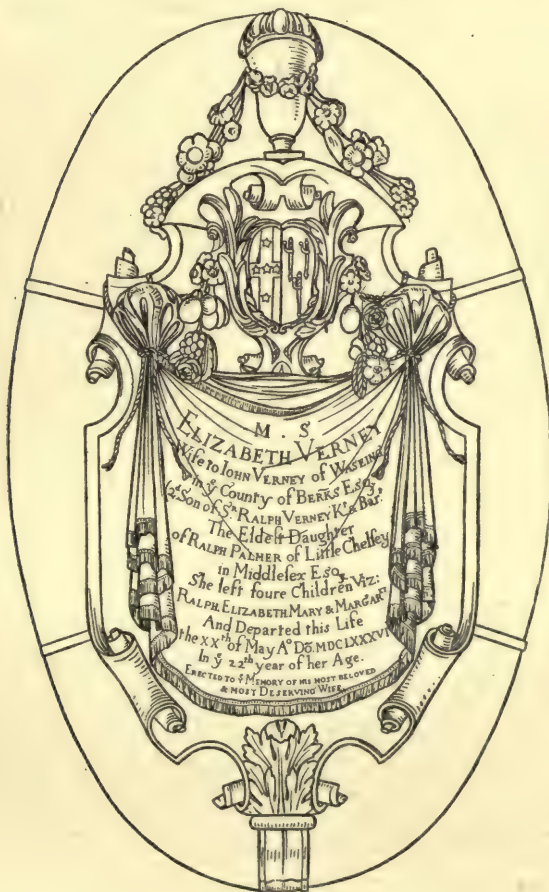 M . S
ELIZABETH VERNEY
Wife to IOHN VERNEY of WASEING
in yᵉ County of BERKS Esqʳ.
(2ᵈ Son of Sʳ RALPH VERNEY Kᵗ & Barᵗ
The Eldest Daughter
of RALPH PALMER of Little Chelsey
in Middlesex Esqʳ
She left foure Children Viz:
RALPH, ELIZABETH MARY & MARGARᵀ
And Departed this Life
the XXᵗʰ of May Aᵒ Dō. MDCLXXXVI
In yᵉ 22ᵗʰ year of her Age.
ERECTED TO Yᵉ MEMORY OF HIS MOST BELOVED
& MOST DESERVING WIFE.